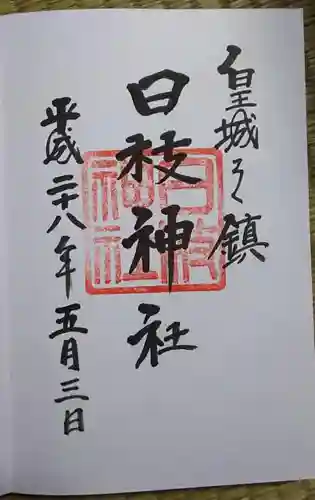 皇城之鎮
日枝神社
平成二十八年五月三日
日枝
神社